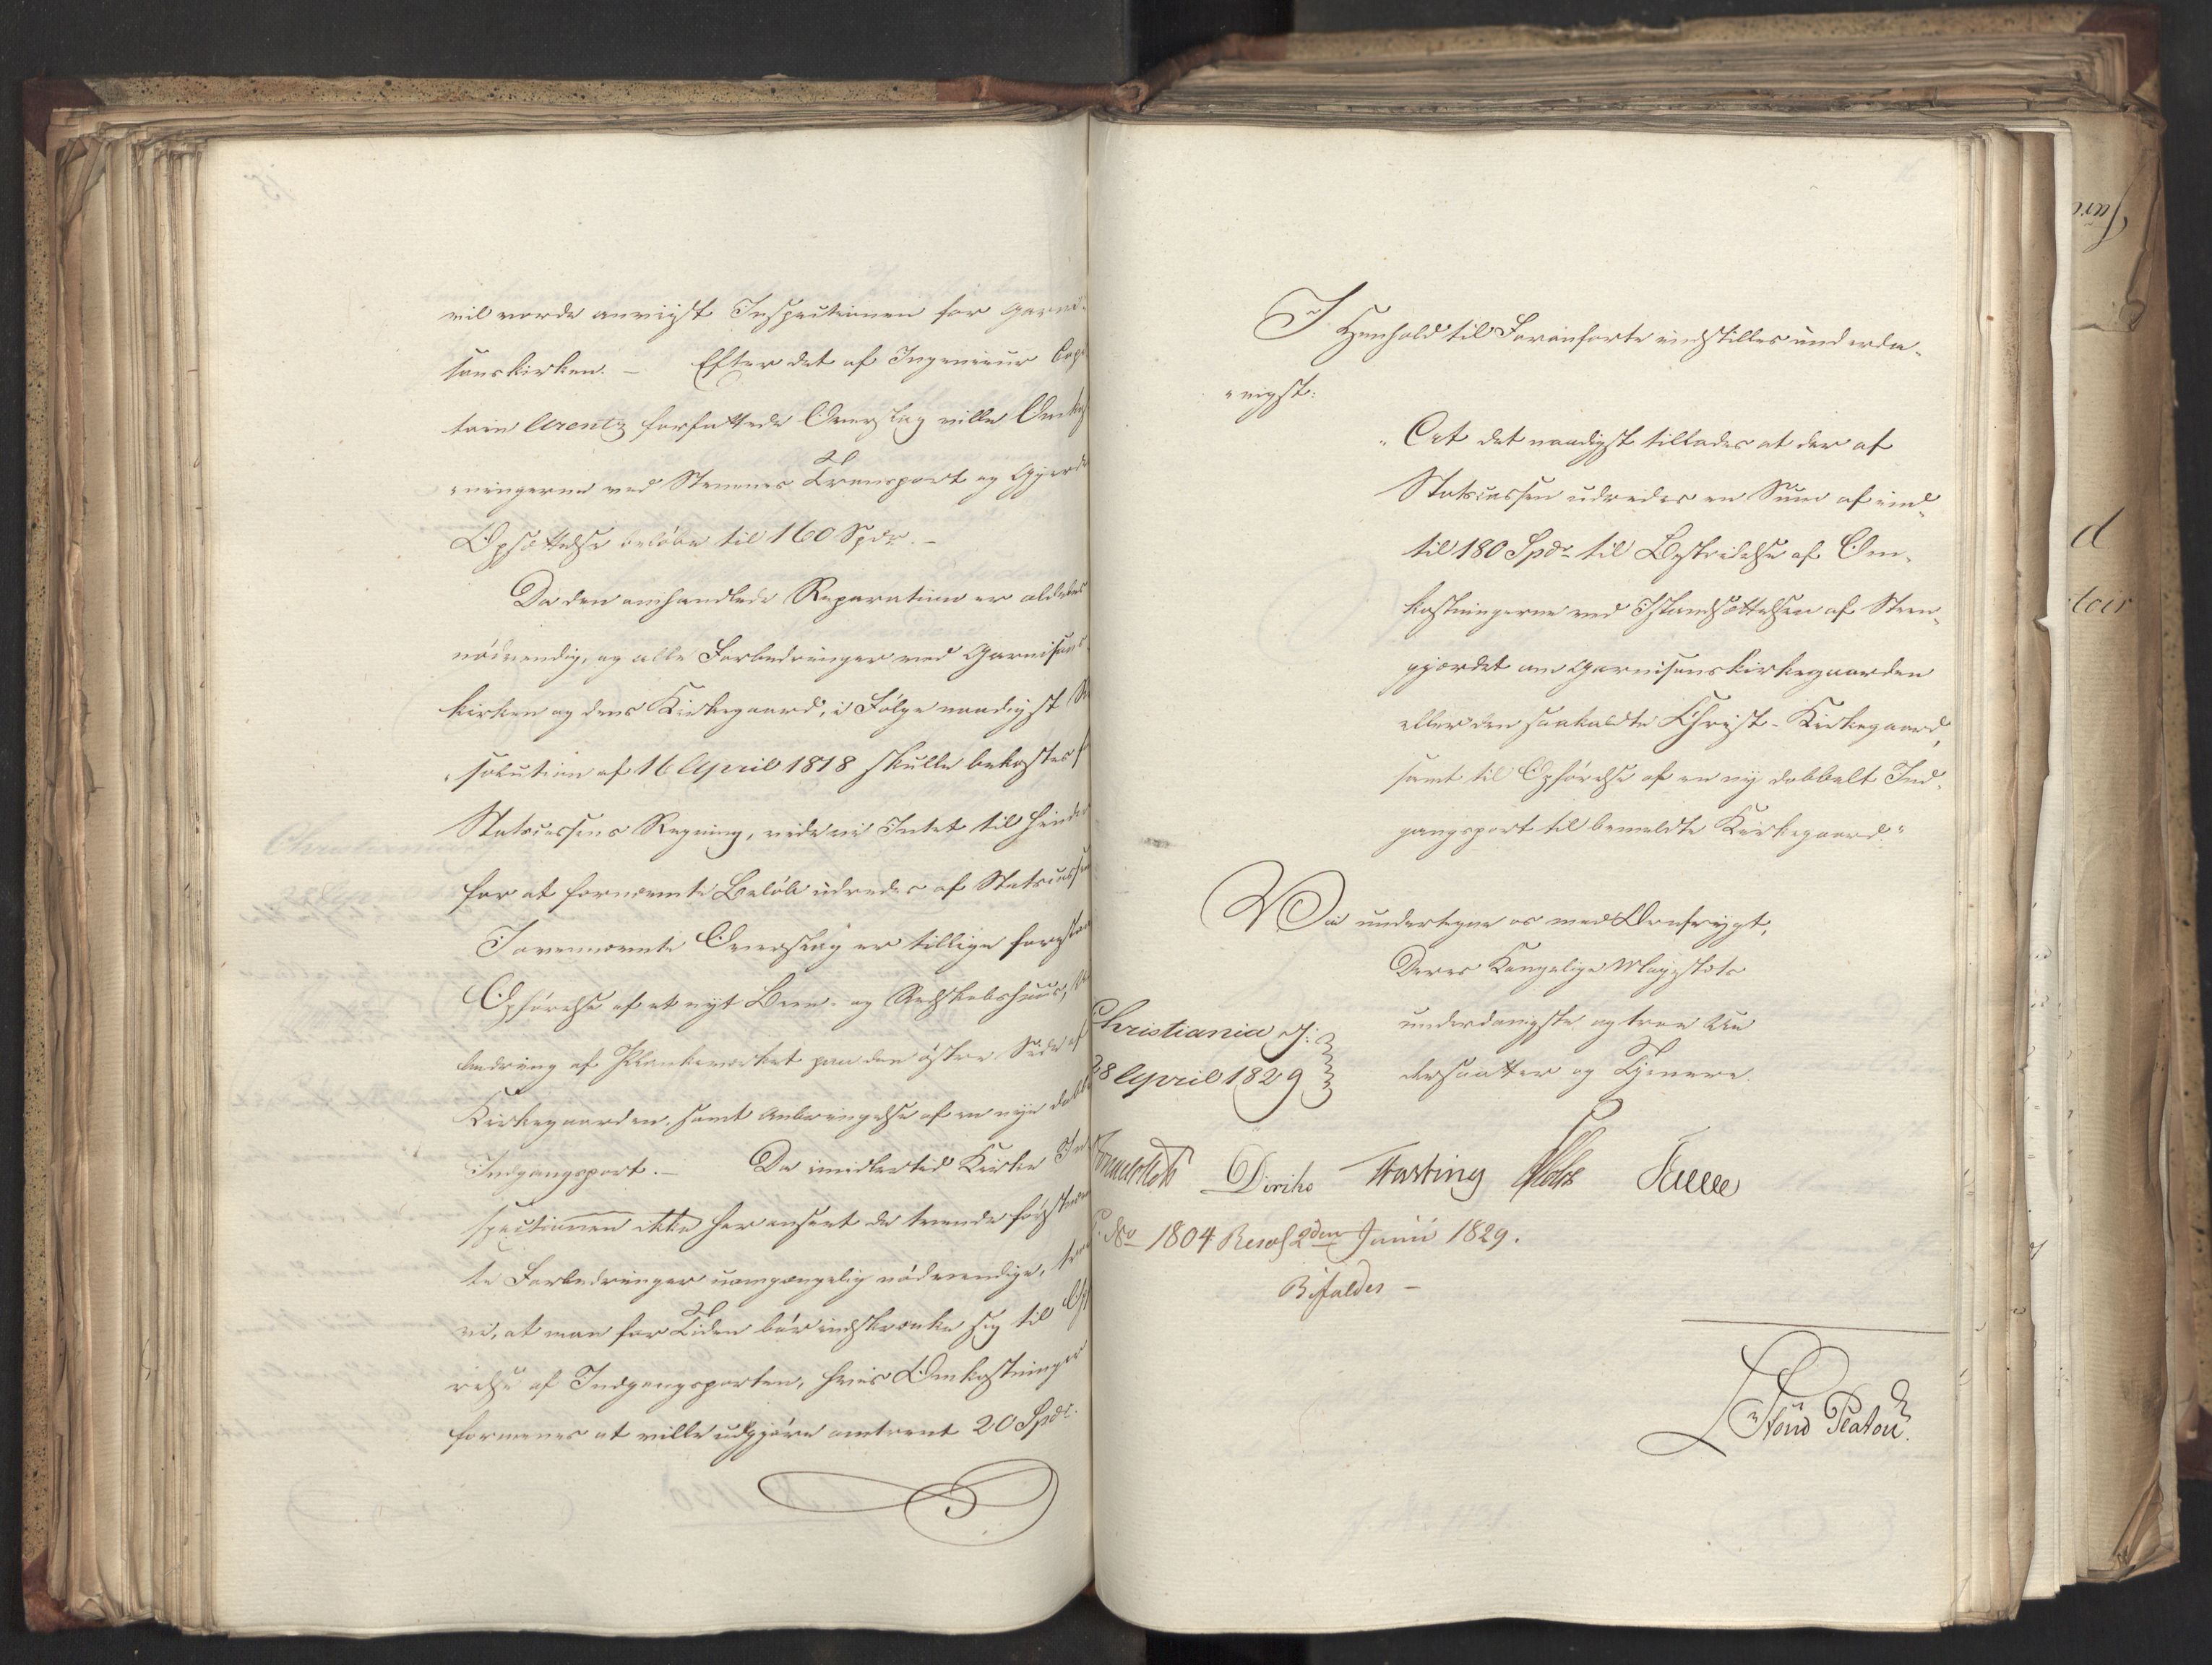 vil vorde anviist Inspectionen for Garni-
sonskirken. – Efter det af Ingenieur Cap
tain Arentz forfattede Overslag ville Omkost
-ningerne ved Stenenes Transport og Gjerdets
Opsættelse beløbe til 160 Spdr. –
Da den omhandlede Reparation er aldeles
nødvendig, og alle Forbedringer ved Garnisons-
kirken og dens Kirkegaard, i Følge naadigst Re
-solution af 16 April 1818 skulle bekostes for
Statscassens Regning, vide vi Intet til Hinder
for at fornævnte Beløb udredes af Statscassen
I ovennævnte Overslag er tillige foreslaaet
Opførelse af et nyt Been- og Redskabshuus,
bedring af Plankeværket paa den østre Side af
Kirkegaarden, samt Anbringelse af en nye dobbelt
Indgangsport. – Da imidlertid Kirke In
spectionen ikke har anseet de tvende først
te Forbedringer uomgængelig nødvendige, troe
vi, at man for Tiden bør indskrænke sig til Opfø
relse af Indgangsporten, hvis Omkostninger
formenes at ville udgjøre omtrent 20 Spdr.
I Henhold til Foranførte indstilles underda-
-nigst:
"At det naadigst tillades at der af
Statscassen udredes en Sum af ind-
til 180 Spdr til Bestridelse af Om-
kostningerne ved Istandsættelsen af Steen-
gjærdet om Garnisonskirkegaarden
eller den saakaldte Christ-Kirkegaard,
samt til Opførelse af en ny dobbelt Ind-
gangsport til bemeldte Kirkegaard."
Vi undertegne os med Ærefrygt,
Deres Kongelige Majestæts
underdanigste og troe Un
dersaatter og Tjenere.
Christiania d:
28 April 1829
Diriks Fasting Holst
No 1804 Resol 2den Junii 1829.
Bifaldes –
Platou.